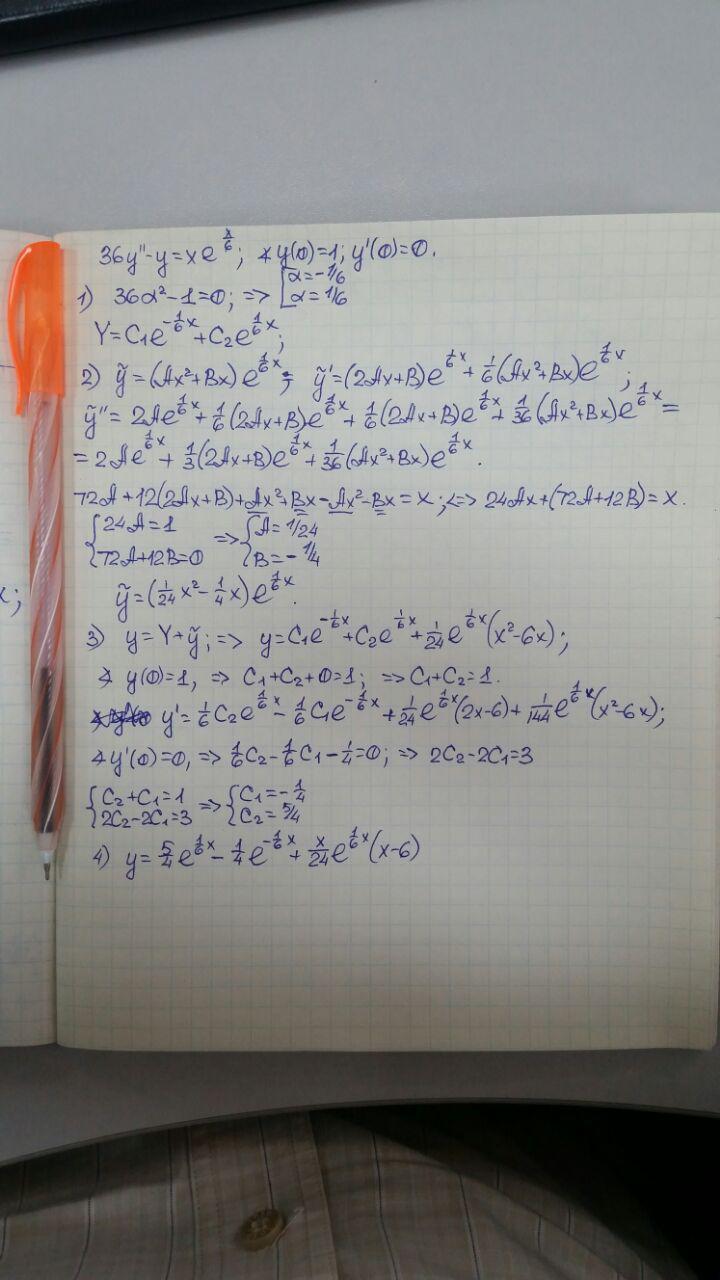 36y''-y=xe^{x/6}; ∢ y(0)=1; y'(0)=0.
1) 36α²-1=0; => [α=-1/6
α=1/6
Y=C₁e^{-1/6 x}+C₂e^{1/6 x};
2) ỹ=(Ax²+Bx)e^{1/6 x}; ỹ'=(2Ax+B)e^{1/6 x}+1/6(Ax²+Bx)e^{1/6 x};
ỹ''=2Ae^{1/6 x}+1/6(2Ax+B)e^{1/6 x}+1/6(2Ax+B)e^{1/6 x}+1/36(Ax²+Bx)e^{1/6 x}=
=2Ae^{1/6 x}+1/3(2Ax+B)e^{1/6 x}+1/36(Ax²+Bx)e^{1/6 x}.
72A+12(2Ax+B)+Ax²+Bx-Ax²-Bx=x; <=> 24Ax+(72A+12B)=x.
{24A=1 => {A=1/24
72A+12B=0 B=-1/4
ỹ=(1/24 x²-1/4 x)e^{1/6 x}.
3) y=Y+ỹ; => y=C₁e^{-1/6 x}+C₂e^{1/6 x}+1/24 e^{1/6 x}(x²-6x);
∢ y(0)=1, => C₁+C₂+0=1; => C₁+C₂=1.
y'=1/6 C₂e^{1/6 x}-1/6 C₁e^{-1/6 x}+1/24 e^{1/6 x}(2x-6)+1/144 e^{1/6 x}(x²-6x);
∢ y'(0)=0, => 1/6 C₂-1/6 C₁-1/4=0; => 2C₂-2C₁=3
{C₂+C₁=1 => {C₁=-1/4
2C₂-2C₁=3 C₂=5/4
4) y=5/4 e^{1/6 x}-1/4 e^{-1/6 x}+x/24 e^{1/6 x}(x-6)
x;